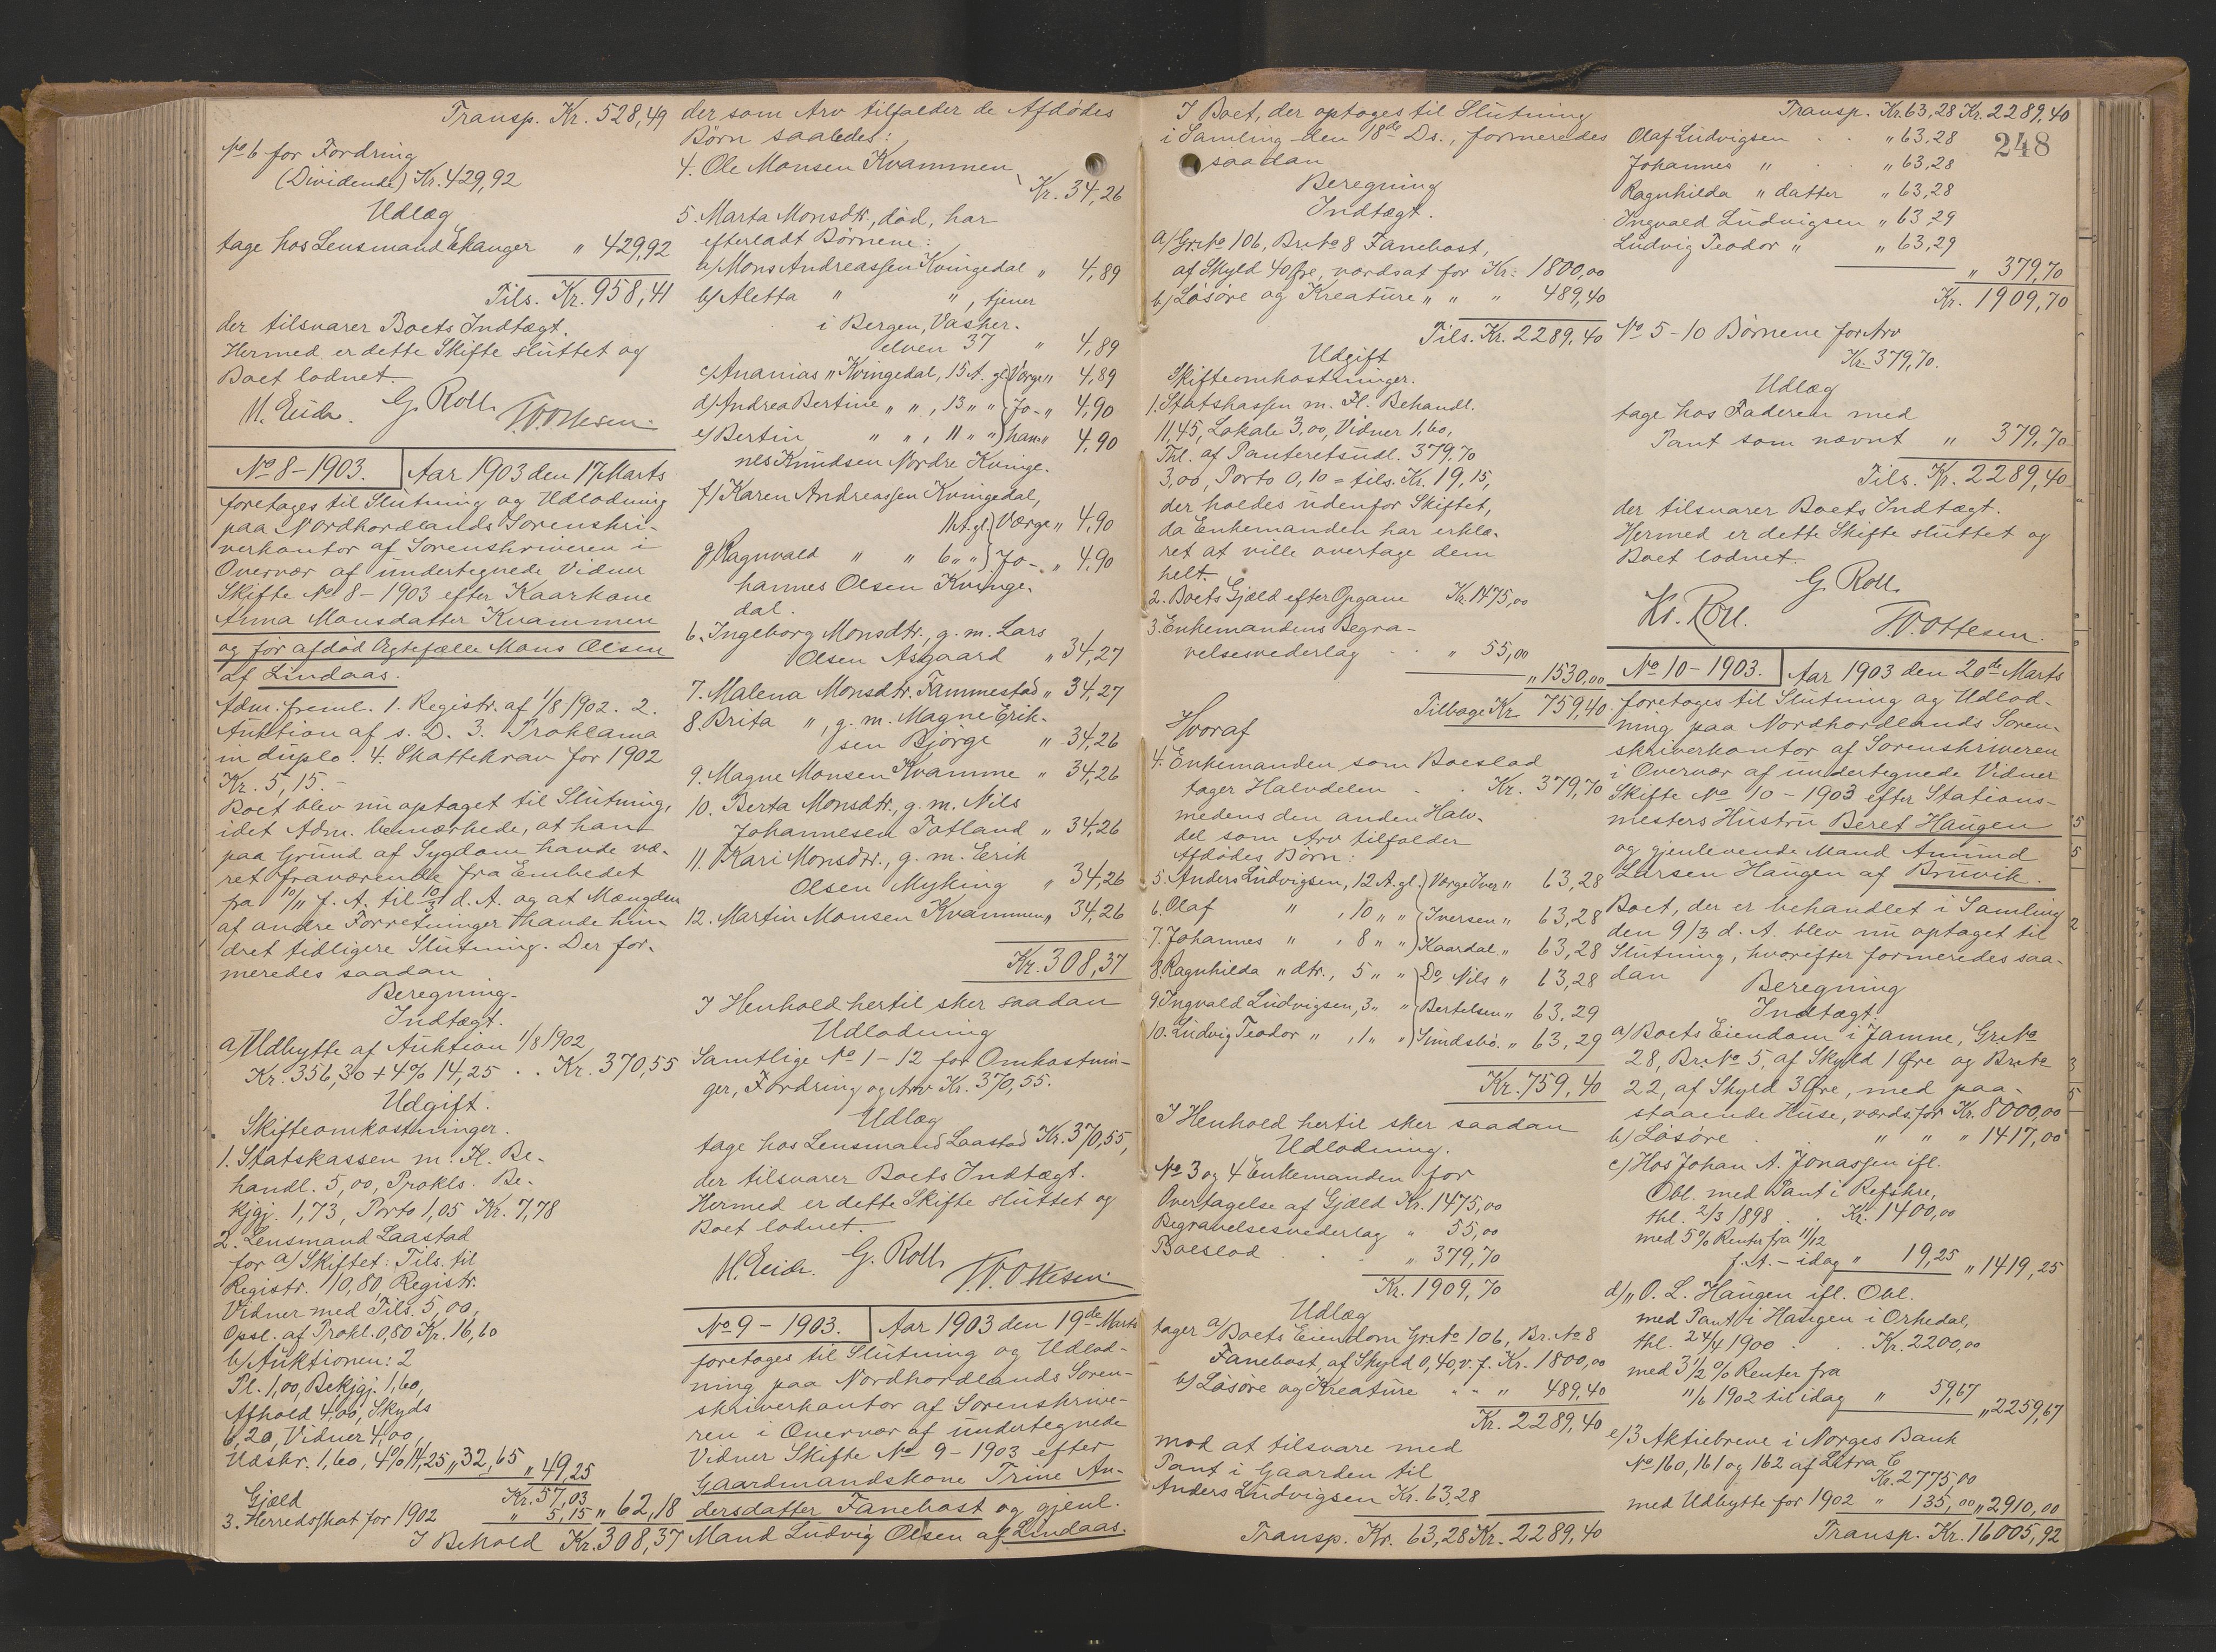 Transp. Kr. 528,49
No 6 for Fordring
(Dividende) Kr. 429,92
Udlæg
tage hos Lensmand Ekanger " 429,92
Tils. Kr. 958,41
der tilsvarer Boets Indtægt.
Hermed er dette Skifte sluttet og
Boet lodnet.
M. Eide. G. Roll. T. Ottesen.
No 8-1903. Aar 1903 den 17 Marts
foretages til Slutning og Udlodning
paa Nordhordlands Sorenskri-
verkontor af Sorenskriveren i
Overvær af undertegnede Vidner
Skifte No 8-1903 efter Kaarkone
Anna Monsdatter Kvammen
og før afdød Ægtefælle Mons Olsen
af Lindaas.
Adm. freml. 1. Registr. af 1/8 1902. 2.
Auktion af s. D. 3. Proklama
in duplo. 4. Skattekrav for 1902
Kr. 5,15.-
Boet blev nu optaget til Slutning,
idet Adm. bemærkede, at han
paa Grund af Sygdom havde væ-
ret fraværende fra Embedet
fra 10/11 f. A. til 10/3 d. A. og at Mængden
af andre Forretninger havde hin-
dret tidligere Slutning. Der for-
meredes saadan
Beregning.
Indtægt.
a/ Udbytte af Auktion 1/8 1902
Kr. 356,30 + 4% 14,25 . . Kr. 370,55
Udgift.
Skifteomkostninger.
1. Statskassen m. Fl. Be-
handl. 5,00, Prokls. Be-
kjgj. 1,73, Porto 1,05 Kr. 7,78
2. Lensmand Laastad
for a/ Skiftet: Tils. til
Registr. 10,80, Registr.
Vidner med Tils. 5,00,
Opsl. af Prokl. 0,80 Kr. 16,60
b/ Auktionen: 2
Pl. 1,00, Bekjgj. 1,60,
Afhold 4,00, Skyds
6,20, Vidner 4,00,
Udskr. 1,60, 4% 14,25 " 32,65 " 49,25
Kr. 57,03
Gjæld
3. Herredsskat for 1902 " 5,15 " 62,18
I Behold Kr. 308,37
der som Arv tilfalder de Afdødes
Børn saaledes:
4. Ole Monsen Kvammen
Kr. 34,26
5. Marta Monsdtr., død, har
efterladt Børnene:
a/ Mons Andreassen Kvingedal " 4,89
b/ Aletta " ", tjener
i Bergen, Vasker-
elven 37 " 4,89
c/ Ananias " Kvingedal, 15 A. gl. Værge " 4,89
d/ Andrea Bertine " ", 13 " " Jo- " 4,90
e/ Bertin " ", 11 " " han- " 4,90
nes Knudsen Nordre Kvinge.
f/ Karen Andreassen Kvingedal,
11 A. gl. Værge " 4,90
g/ Ragnvald " " 6 " " Jo- " 4,90
hannes Olsen Kvinge-
dal.
6. Ingeborg Monsdtr., g. m. Lars
Olsen Asgaard " 34,27
7. Malena Monsdtr. Fammestad " 34,27
8. Brita ", g. m. Magne Erik-
sen Bjørge " 34,26
9. Magne Monsen Kvamme " 34,26
10. Berta Monsdtr., g. m. Nils
Johannesen Totland " 34,26
11. Kari Monsdtr., g. m. Erik
Olsen Myking " 34,26
12. Martin Monsen Kvammen " 34,26
Kr. 308,37
I Henhold hertil sker saadan
Udlodning
Samtlige No 1-12 for Omkostnin-
ger, Fordring og Arv Kr. 370,55.
Udlæg
tage hos Lensmand Laastad Kr. 370,55,
der tilsvarer Boets Indtægt.
Hermed er dette Skifte sluttet og
Boet lodnet.
M. Eide. G. Roll. T. Ottesen.
No 9-1903. Aar 1903 den 19de Marts
foretages til Slutning og Udlod-
ning paa Nordhordlands Soren-
skriverkontor af Sorenskrive-
ren i Overvær af undertegnede
Vidner Skifte No 9-1903 efter
Gaardmandskone Trine An-
dersdatter Fanebost og gjenl.
Mand Ludvig Olsen af Lindaas.
I Boet, der optoges til Slutning
i Samling den 18de Ds., formeredes
saadan
Beregning
Indtægt.
a/ Gr. No 106, Br. No 8 Fanebost,
af Skyld 40 Øre, værdsat for Kr. 1800,00
b/ Løsøre og Kreature " " " 489,40
Tils. Kr. 2289,40
Udgift
Skifteomkostninger.
1. Statskassen m. Fl. Behandl.
11,45, Lokale 3,00, Vidner 1,60,
Thl. af Panteretsudl. 379,70
3,00, Porto 0,10 = tils. Kr. 19,15,
der holdes udenfor Skiftet,
da Enkemanden har erklæ-
ret at ville overtage dem
helt.
2. Boets Gjæld efter Opgave Kr. 1475,00
3. Enkemandens Begra-
velsesvederlag . . " 55,00
" 1530,00
Tilbage Kr. 759,40
Hvoraf
4. Enkemanden som Boeslod
tager Halvdelen . . Kr. 379,70
medens den anden Halv-
del som Arv tilfalder
Afdødes Børn:
5. Anders Ludvigsen, 12 A. gl. Værge Iver " 63,28
6. Olaf " , 10 " " Iversen " 63,28
7. Johannes " , 8 " " Kaardal " 63,28
8. Ragnhilda " dtr., 5 " " Do. Nils " 63,28
9. Ingvald Ludvigsen, 3 " " Bertelsen " 63,29
10. Ludvig Teodor " , 1 " " Sundsbø. " 63,29
Kr. 759,40
I Henhold hertil sker saadan
Udlodning.
No 3 og 4 Enkemanden for
Overtagelse af Gjæld Kr. 1475,00
Begravelsesvederlag " 55,00
Boeslod . . " 379,70
Kr. 1909,70
Udlæg
tager a/ Boets Eiendom Gr. No 106, Br. No 8
Fanebost, af Skyld 0,40, v. f. Kr. 1800,00
b/ Løsøre og Kreature " " " 489,40
Kr. 2289,40
mod at tilsvare med
Pant i Gaarden til
Anders Ludvigsen Kr. 63,28
Transp. Kr. 63,28 Kr. 2289,40
Transp. Kr. 63,28 Kr. 2289,40
248
Olaf Ludvigsen . . " 63,28
Johannes " . . " 63,28
Ragnhilda " datter " 63,28
Ingvald Ludvigsen " 63,29
Ludvig Teodor " " 63,29
" 379,70
Kr. 1909,70
No 5-10 Børnene for Arv
Kr. 379,70.
Udlæg
tage hos Faderen med
Pant som nævnt " 379,70
Tils. Kr. 2289,40
der tilsvarer Boets Indtægt.
Hermed er dette Skifte sluttet og
Boet lodnet.
G. Roll.
Kr. Roll. T. Ottesen.
No 10-1903. Aar 1903 den 20de Marts
foretoges til Slutning og Udlod-
ning paa Nordhordlands Soren-
skriverkontor af Sorenskriveren
i Overvær af undertegnede Vidner
Skifte No 10-1903 efter Stations-
mesters Hustru Beret Haugen
og gjenlevende Mand Amund
Larsen Haugen af Bruvik.
Boet, der er behandlet i Samling
den 9/3 d. A. blev nu optaget til
Slutning, hvorefter formeredes saa-
dan
Beregning
Indtægt.
a/ Boets Eiendom i Jamne, Gr. No
28, Br. No 5, af Skyld 1 Øre og Br. No
22, af Skyld 3 Øre, med paa-
staaende Huse, værds. for Kr. 8000,00
b/ Løsøre . . " " " 1417,00
c/ Hos Johan A. Jonassen ifl.
Obl. med Pant i Refskre,
thl. 2/3 1898 . . Kr. 1400,00
med 5% Renter fra 11/12
f. A. - idag " 19,25 " 1419,25
d/ " O. L. Haugen ifl. Obl.
med Pant i Haugen i Orkedal,
thl. 24/4 1900 . . Kr. 2200,00
med 3 1/2 % Renter fra
11/6 1902 til idag " 59,67 " 2259,67
e/ 3 Aktiebreve i Norges Bank
No 160, 161 og 162 af Litra C
Kr. 2775,00
med Udbytte for 1902 " 135,00 " 2910,00
Transp. Kr. 16005,92